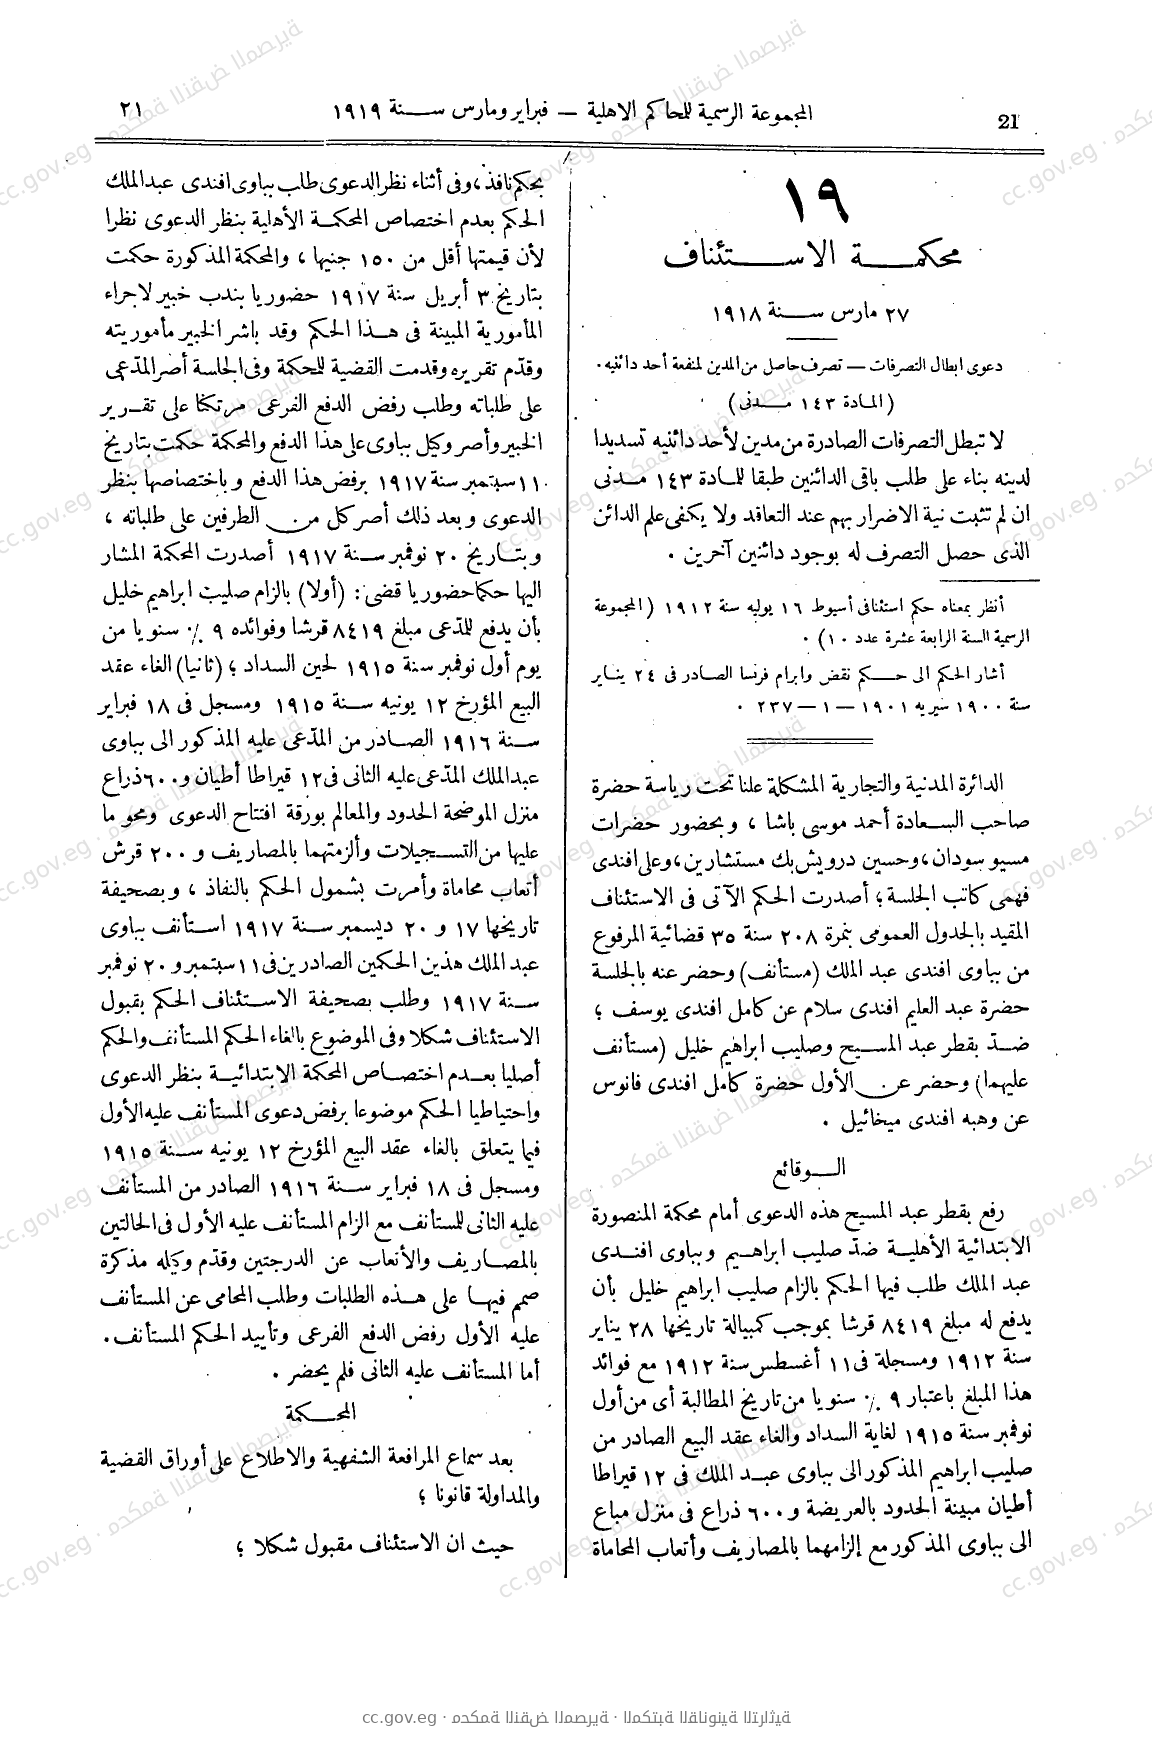 21
المجموعة الرسمية للمحاكم الاهلية — فبراير ومارس سنة ١٩١٩
٢١
١٩
محكمة الاستئناف
٢٧ مارس سنة ١٩١٨
دعوى ابطال التصرفات — تصرف حاصل من المدين لمنفعة أحد دائنيه .
(المادة ١٤٣ مدنى)
لا تبطل التصرفات الصادرة من مدين لأحد دائنيه تسديدا
لدينه بناء على طلب باقى الدائنين طبقا للمادة ١٤٣ مدنى
ان لم تثبت نية الاضرار بهم عند التعاقد ولا يكفى علم الدائن
الذى حصل التصرف له بوجود دائنين آخرين .
أنظر بمعناه حكم استئنافى أسيوط ١٦ يوليه سنة ١٩١٢ (المجموعة
الرسمية السنة الرابعة عشرة عدد ١٠) .
أشار الحكم الى حكم نقض وابرام فرنسا الصادر فى ٢٤ يناير
سنة ١٩٠٠ سيريه ١٩٠١ — ١ — ٢٣٧ .
الدائرة المدنية والتجارية المشكلة علنا تحت رياسة حضرة
صاحب السعادة أحمد موسى باشا ، وبحضور حضرات
مسيو سودان ، وحسين درويش بك مستشارين ، وعلى افندى
فهمى كاتب الجلسة ؛ أصدرت الحكم الآتى فى الاستئناف
المقيد بالجدول العمومى بنمرة ٢٠٨ سنة ٣٥ قضائية المرفوع
من بباوى افندى عبد الملك (مستأنف) وحضر عنه بالجلسة
حضرة عبد العليم افندى سلام عن كامل افندى يوسف ؛
ضد بقطر عبد المسيح وصليب ابراهيم خليل (مستأنف
عليهما) وحضر عن الأول حضرة كامل افندى فانوس
عن وهبه افندى ميخائيل .
الوقائع
رفع بقطر عبد المسيح هذه الدعوى أمام محكمة المنصورة
الابتدائية الأهلية ضد صليب ابراهيم وبباوى افندى
عبد الملك طلب فيها الحكم بالزام صليب ابراهيم خليل بأن
يدفع له مبلغ ٨٤١٩ قرشا بموجب كمبيالة تاريخها ٢٨ يناير
سنة ١٩١٢ ومسجلة فى ١١ أغسطس سنة ١٩١٢ مع فوائد
هذا المبلغ باعتبار ٩ ٪ سنويا من تاريخ المطالبة أى من أول
نوفمبر سنة ١٩١٥ لغاية السداد والغاء عقد البيع الصادر من
صليب ابراهيم المذكور الى بباوى عبد الملك فى ١٢ قيراطا
أطيان مبينة الحدود بالعريضة و ٦٠٠ ذراع فى منزل مباع
الى بباوى المذكور مع إلزامهما بالمصاريف وأتعاب المحاماة
بحكم نافذ ، وفى أثناء نظر الدعوى طلب بباوى افندى عبد الملك
الحكم بعدم اختصاص المحكمة الأهلية بنظر الدعوى نظرا
لأن قيمتها أقل من ١٥٠ جنيها ، والمحكمة المذكورة حكمت
بتاريخ ٣ أبريل سنة ١٩١٧ حضوريا بندب خبير لاجراء
المأمورية المبينة فى هذا الحكم وقد باشر الخبير مأموريته
وقدّم تقريره وقدمت القضية للمحكمة وفى الجلسة أصر المدّعى
على طلباته وطلب رفض الدفع الفرعى مرتكنا على تقرير
الخبير وأصر وكيل بباوى على هذا الدفع والمحكمة حكمت بتاريخ
١١ سبتمبر سنة ١٩١٧ برفض هذا الدفع وباختصاصها بنظر
الدعوى وبعد ذلك أصر كل من الطرفين على طلباته ،
وبتاريخ ٢٠ نوفمبر سنة ١٩١٧ أصدرت المحكمة المشار
اليها حكما حضوريا قضى : (أولا) بالزام صليب ابراهيم خليل
بأن يدفع للمدّعى مبلغ ٨٤١٩ قرشا وفوائده ٩ ٪ سنويا من
يوم أول نوفمبر سنة ١٩١٥ لحين السداد ؛ (ثانيا) الغاء عقد
البيع المؤرخ ١٢ يونيه سنة ١٩١٥ ومسجل فى ١٨ فبراير
سنة ١٩١٦ الصادر من المدّعى عليه المذكور الى بباوى
عبد الملك المدّعى عليه الثانى فى ١٢ قيراطا أطيان و ٦٠٠ ذراع
منزل الموضحة الحدود والمعالم بورقة افتتاح الدعوى ومحو ما
عليها من التسجيلات وألزمتهما بالمصاريف و ٢٠٠ قرش
أتعاب محاماة وأمرت بشمول الحكم بالنفاذ ، وبصحيفة
تاريخها ١٧ و ٢٠ ديسمبر سنة ١٩١٧ استأنف بباوى
عبد الملك هذين الحكمين الصادرين فى ١١ سبتمبر و ٢٠ نوفمبر
سنة ١٩١٧ وطلب بصحيفة الاستئناف الحكم بقبول
الاستئناف شكلا وفى الموضوع بالغاء الحكم المستأنف والحكم
أصليا بعدم اختصاص المحكمة الابتدائية بنظر الدعوى
واحتياطيا الحكم موضوعا برفض دعوى المستأنف عليه الأول
فيما يتعلق بالغاء عقد البيع المؤرخ ١٢ يونيه سنة ١٩١٥
ومسجل فى ١٨ فبراير سنة ١٩١٦ الصادر من المستأنف
عليه الثانى للمستأنف مع الزام المستأنف عليه الأول فى الحالتين
بالمصاريف والأتعاب عن الدرجتين وقدّم وكيله مذكرة
صمم فيها على هذه الطلبات وطلب المحامى عن المستأنف
عليه الأول رفض الدفع الفرعى وتأييد الحكم المستأنف .
أما المستأنف عليه الثانى فلم يحضر .
المحكمة
بعد سماع المرافعة الشفهية والاطلاع على أوراق القضية
والمداولة قانونا ؛
حيث ان الاستئناف مقبول شكلا ؛
cc.gov.eg · محكمة النقض المصرية · المكتبة القانونية التراثية